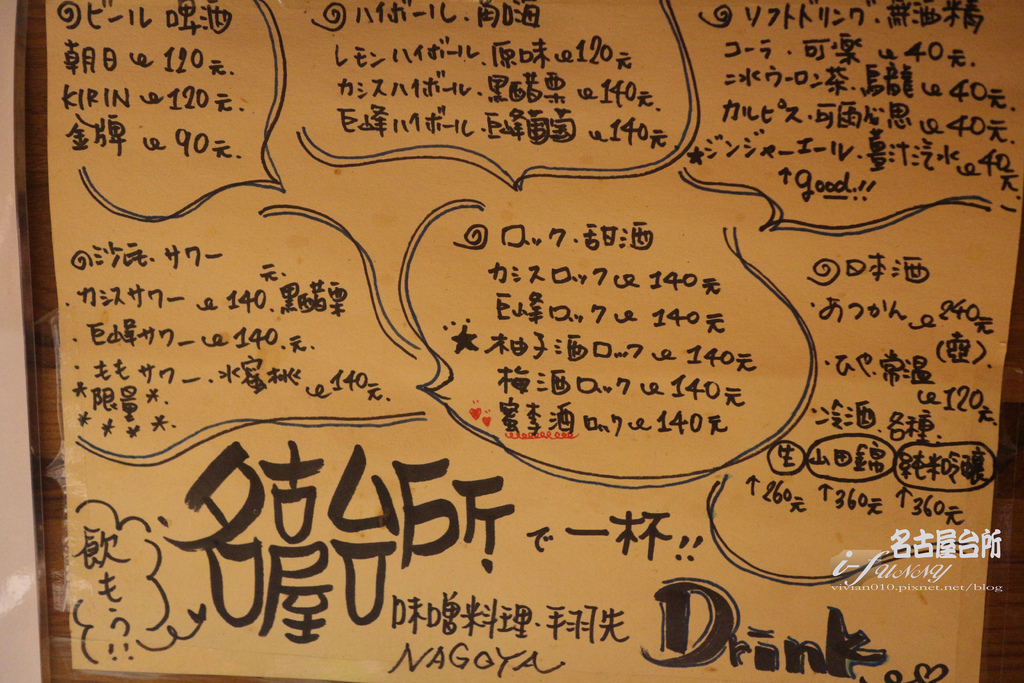 ビール 啤酒
朝日 120元.
KIRIN 120元.
金牌 90元.
ハイボール・角嗨
レモンハイボール・原味 120元.
カシスハイボール・黒醋栗 140元.
巨峰ハイボール・巨峰葡萄 140元.
ソフトドリンク・無酒精
コーラ・可樂 40元.
氷ウーロン茶・烏龍 40元.
カルピス・可爾必思 40元.
★ジンジャーエール・薑汁汽水 40元
↑good!!
沙瓦・サワー
・カシスサワー 140元.黒醋栗
・巨峰サワー 140.元.
・ももサワー・水蜜桃 140元.
*限量*
* * * *
ロック・甜酒
カシスロック 140元
巨峰ロック 140元
★柚子酒ロック 140元
梅酒ロック 140元
蜜李酒ロック 140元
日本酒
・あつかん 240元
(壺)
・ひや・常溫
120元
・冷酒 各種
生 山田錦 純米吟釀
↑260元 ↑360元 ↑360元
飲もう!!
名古屋台所!
で一杯!!
味噌料理・手羽先
NAGOYA
Drink
名古屋台所
i-fUNNY
vivian010.pixnet.net/blog